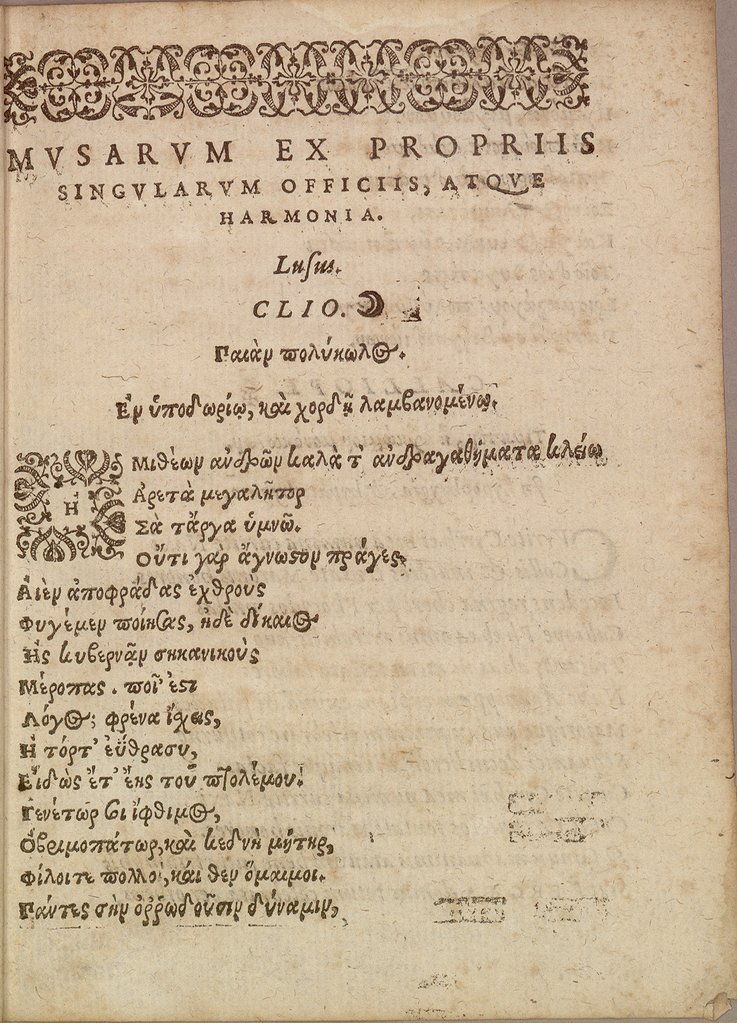 MVSARVM EX PROPRIIS
SINGVLARVM OFFICIIS, ATQVE
HARMONIA.
Lusus.
CLIO. ☽
Παιὰν πολύκωλος.
Ἐν ὑποδωρίῳ, καὶ χορδῇ λαμβανομένῳ.
ΗΜιθέων ἀνδρῶν καλὰ τ' ἀνδραγαθήματα κλείω
Ἀρετὰ μεγαλῆτορ
Σὰ τἄργα ὑμνῶ.
Οὔτι γὰρ ἄγνωστον πράγες.
Αἰὲν ἀποφράδας ἐχθροὺς
Φυγέμεν ποίησας, ἠδὲ δίκαιος
Ἦς κυβερνᾷν σηκανικοὺς
Μέροπας. ποῖ' ἐστι
Λόγος; φρένα ἴχεις,
Ἡ τόρτ' εὔθρασυ,
Εἰδὼς ἔτ' ἔης τοῦ πτολέμου.
Γενέτωρ σι ἴφθιμος,
Ὀβριμοπάτωρ, καὶ κεδνὴ μήτηρ,
Φίλοιτε πολλοὶ, κάι θεν ὅμαιμοι.
Πάντες σὴν ὀῤῥωδοῦσιν δύναμιν,